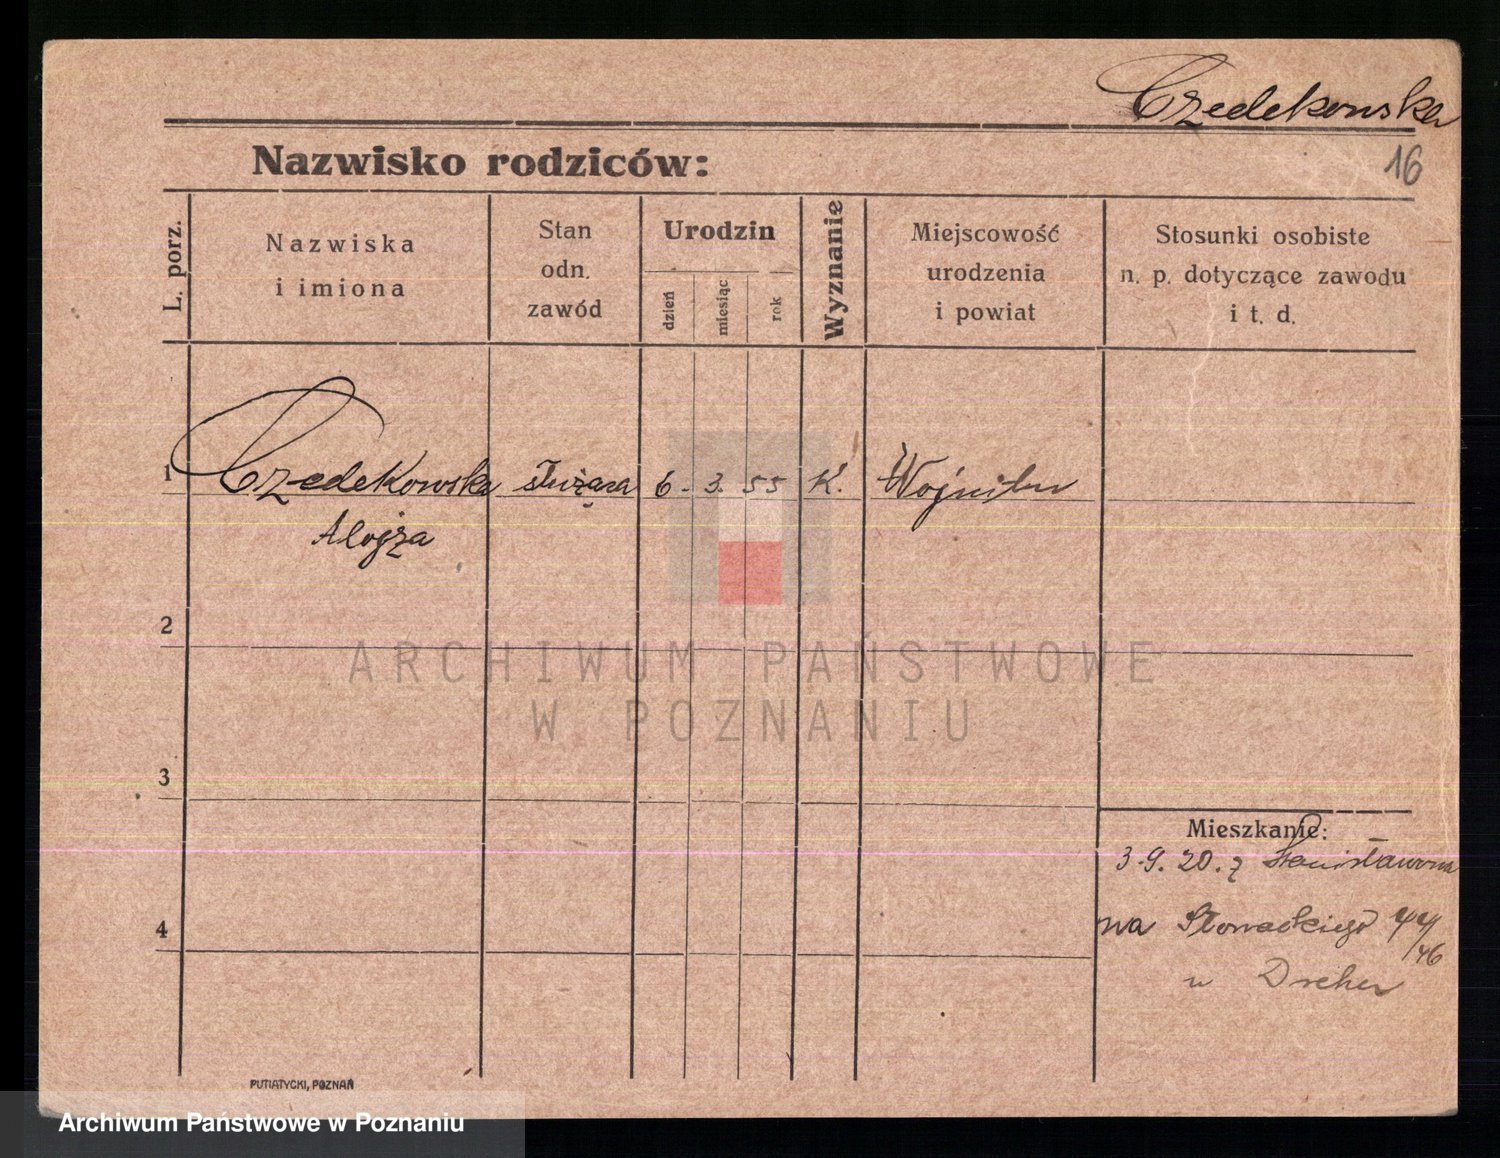 Czedekowska
16
Nazwisko rodziców:
L. porz.
Nazwiska
i imiona
Stan
odn.
zawód
Urodzin
dzień
miesiąc
rok
Wyznanie
Miejscowość
urodzenia
i powiat
Stosunki osobiste
n. p. dotyczące zawodu
i t. d.
1 Czedekowska służąca 6. 3. 55 K.
Alojza
2
ARCHIWUM PAŃSTWOWE
W POZNANIU
3
Mieszkanie:
3.9.20. z Stanisławowa
4
na Słowackiego 44/46
u Dreher
PUTIATYCKI, POZNAŃ
Archiwum Państwowe w Poznaniu